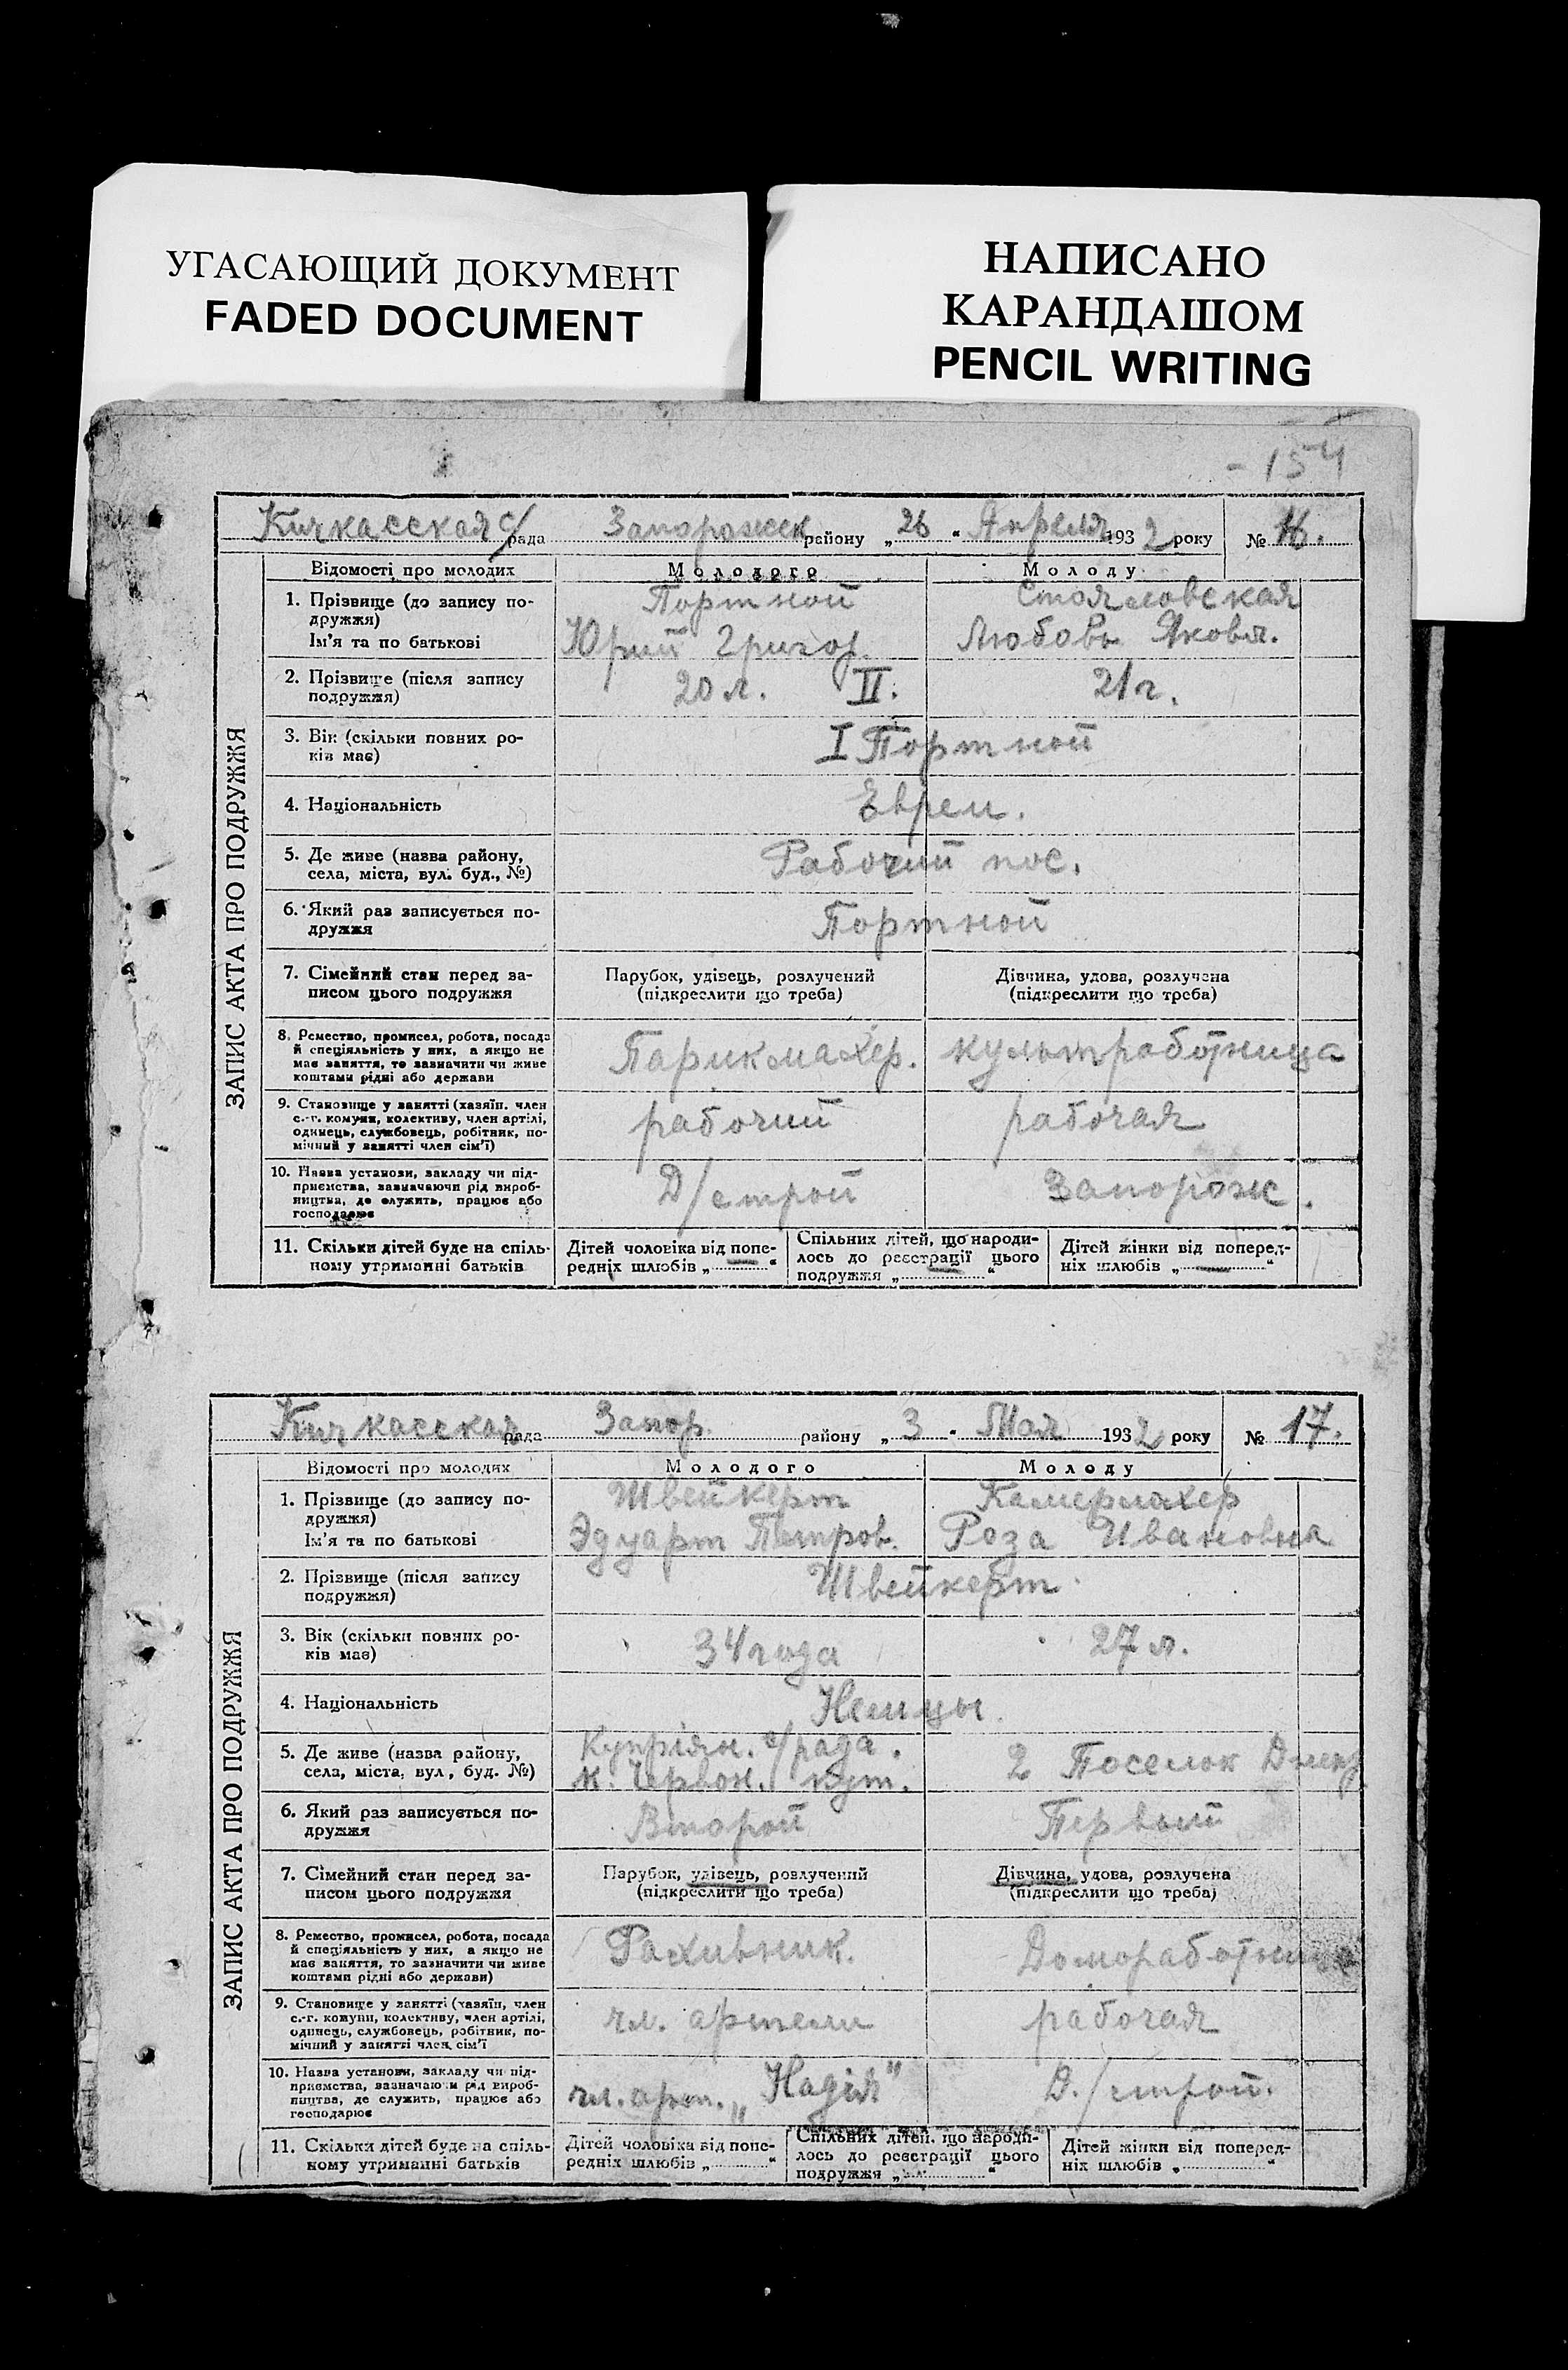 УГАСАЮЩИЙ ДОКУМЕНТ
FADED DOCUMENT
НАПИСАНО
КАРАНДАШОМ
PENCIL WRITING
- 154
Кичкасская с/рада Запорожск району „26“ Апреля 1932 року № 16.
ЗАПИС АКТА ПРО ПОДРУЖЖЯ
Відомості про молодих Молодого Молоду
1. Прізвище (до запису по- Портной
дружжя)
Ім'я та по батькові Юрий Григор. Любовь Яковл.
2. Прізвище (після запису 20 л. II. 21 г.
подружжя)
3. Вік (скільки повних ро- I Портной
ків має)
4. Національність Евреи.
5. Де живе (назва району, Рабочий пос.
села, міста, вул. буд., №)
6. Який раз записується по- Портной
дружжя
7. Сімейний стан перед за- Парубок, удівець, розлучений Дівчина, удова, розлучена
писом цього подружжя (підкреслити що треба) (підкреслити що треба)
8. Ремество, промисел, робота, посада Парикмахер. культработница
й спеціяльність у них, а якщо не
має заняття, то зазначити чи живе
коштами рідні або держави
9. Становище у занятті (хазяїн. член рабочий рабочая
с.-г. комуни, колективу, член артілі,
одинець, службовець, робітник, по-
мічний у занятті член сім'ї)
10. Назва установи, закладу чи під- Д/строй Запорож.
приємства, зазначаючи рід вироб-
ництва, де служить, працює або
господарює
11. Скільки дітей буде на спіль- Дітей чоловіка від попе- Спільних дітей, що народи- Дітей жінки від поперед-
ному утриманні батьків редніх шлюбів „—“ лось до реєстрації цього ніх шлюбів „—“
подружжя „—“
Кичкасская рада Запор. району „3“ Мая 1932 року № 17.
ЗАПИС АКТА ПРО ПОДРУЖЖЯ
Відомості про молодих Молодого Молоду
1. Прізвище (до запису по- Швейкерт Камермахер
дружжя)
Ім'я та по батькові Эдуарт Петров. Роза Ивановна
2. Прізвище (після запису Швейкерт.
подружжя)
3. Вік (скільки повних ро- 34 года 27 л.
ків має)
4. Національність Немцы.
5. Де живе (назва району, Купріян. с/рада. 2 Поселок
села, міста, вул, буд. №) к. Червон. кут.
6. Який раз записується по- Второй Первый
дружжя
7. Сімейний стан перед за- Парубок, удівець, розлучений Дівчина, удова, розлучена
писом цього подружжя (підкреслити що треба) (підкреслити що треба)
8. Ремество, промисел, робота, посада Рахивник. Домработница
й спеціяльність у них, а якщо не
має заняття, то зазначити чи живе
коштами рідні або держави)
9. Становище у занятті (хазяїн, член чл. артели рабочая
с.-г. комуни, колективу, член артілі,
одинець, службовець, робітник, по-
мічний у занятті член сім'ї
10. Назва установи, закладу чи під- чл. арт. „Надія" Д./строй.
приємства, зазначаючи рід вироб-
ництва, де служить, працює або
господарює
11. Скільки дітей буде на спіль- Дітей чоловіка від попе- Спільних дітей, що народи- Дітей жінки від поперед-
ному утриманні батьків редніх шлюбів „ “ лось до реєстрації цього ніх шлюбів „ “
подружжя „ “